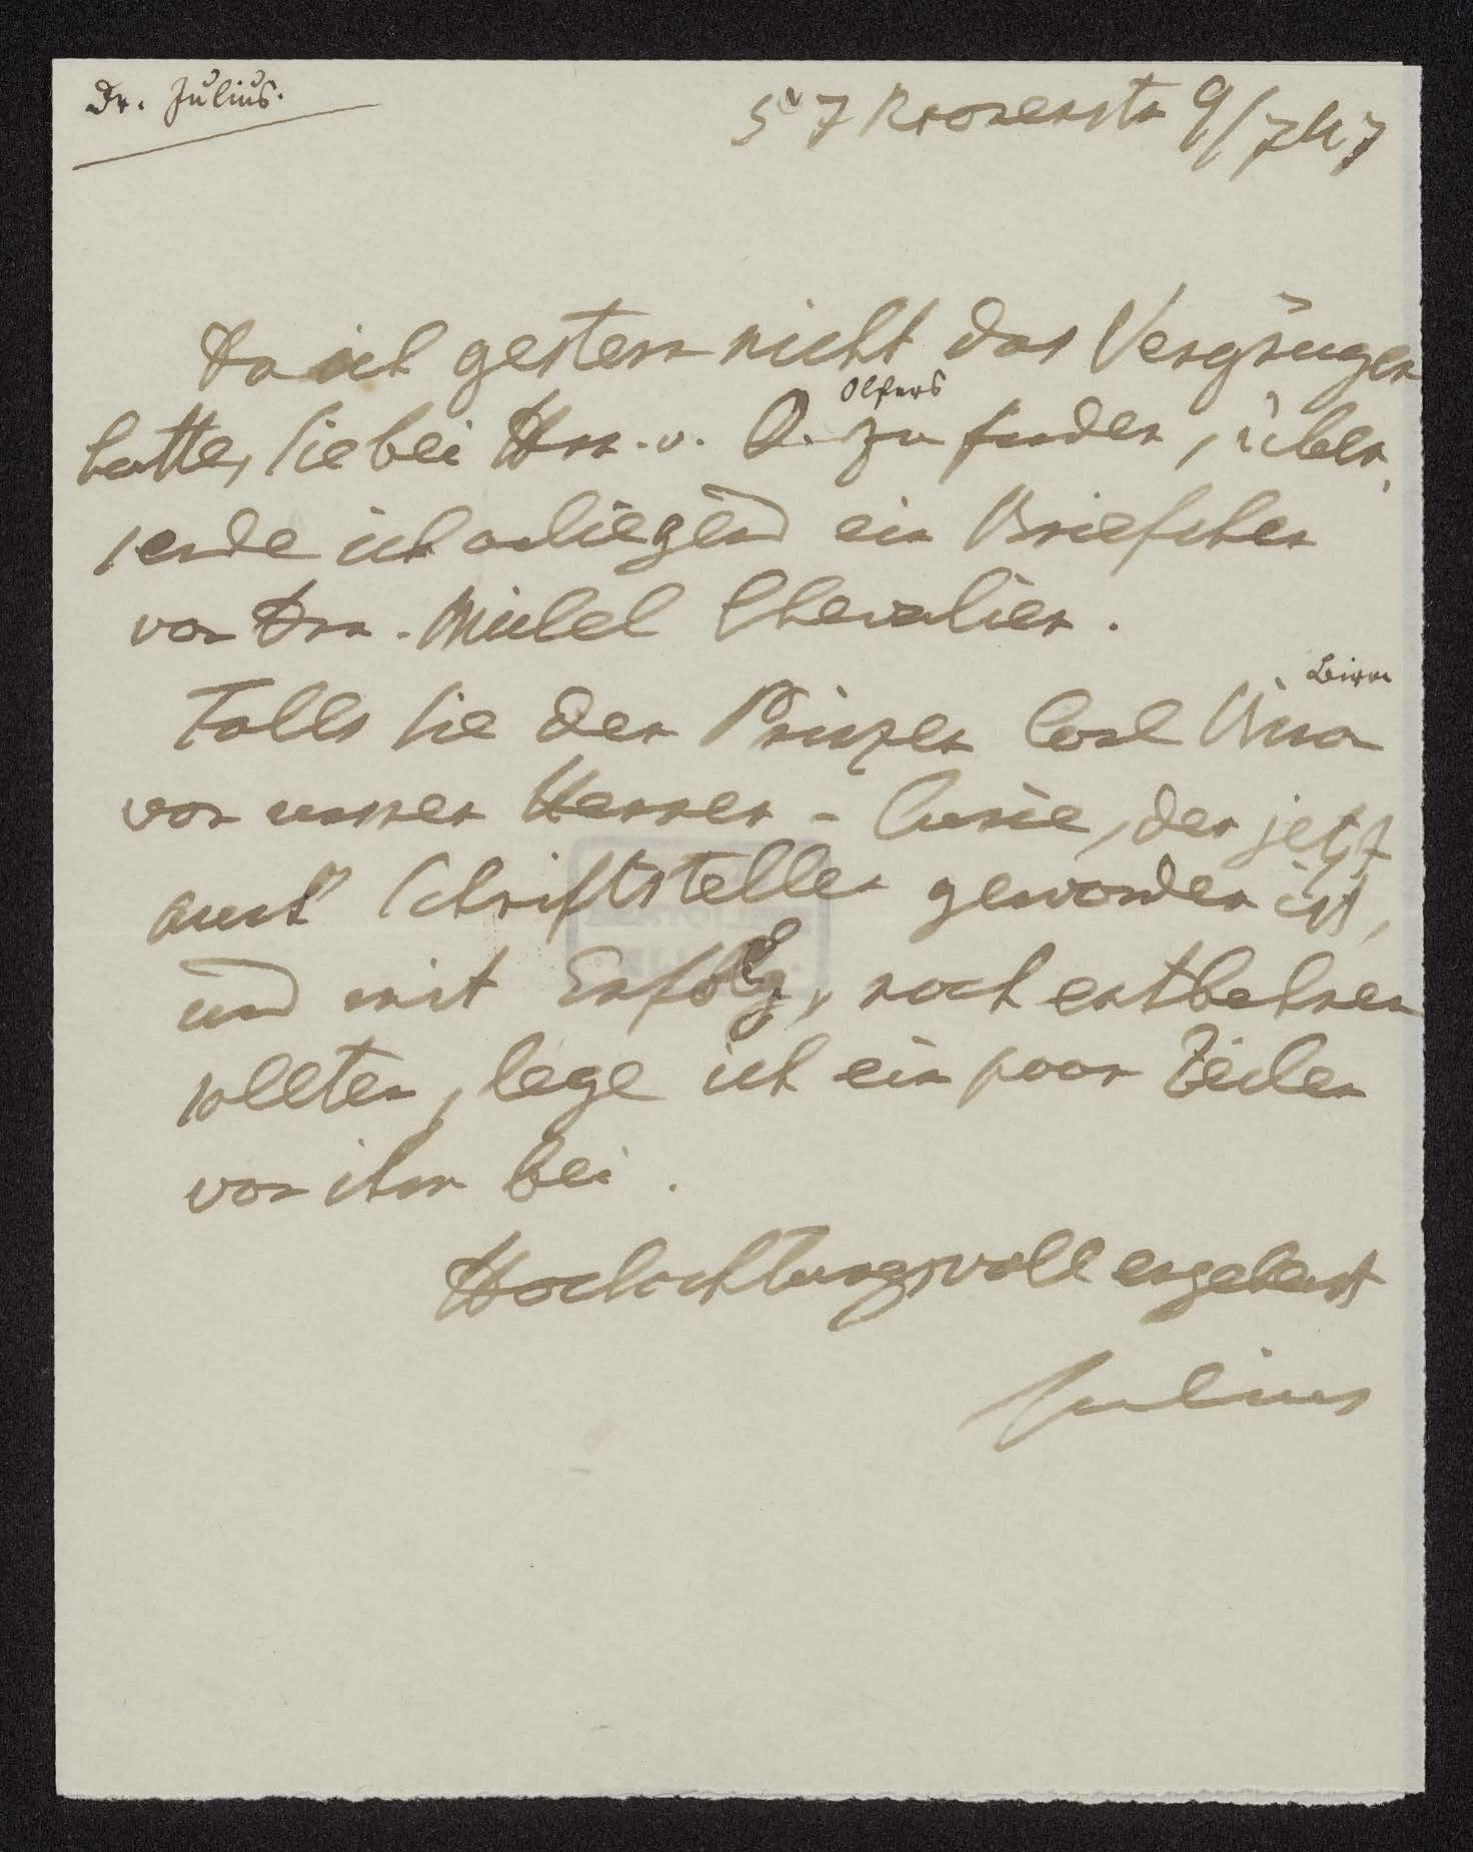 Dr. Julius.
57 Kronenstr 9/7 47
Da ich gestern nicht das Vergnügen
Olfers
hatte, Sie bei Hrn. v. O. zu finden, über-
sende ich anliegend ein Briefchen
von Hrn. Michel Chevalier.
Falls Sie den Prinzen Carl
von unsrer Herren-Curie, der jetzt
auch Schriftsteller geworden ist,
und mit Erfolg, noch entbehren
sollten, lege ich ein paar Zeilen
von ihm bei.
Hochachtungsvoll ergebenst
Julius